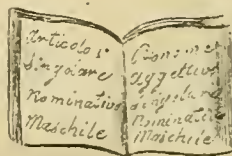 Articolo
Singolare
Nominativo
Maschile
Pronome
aggettivo
singolare
nominati
Maschile